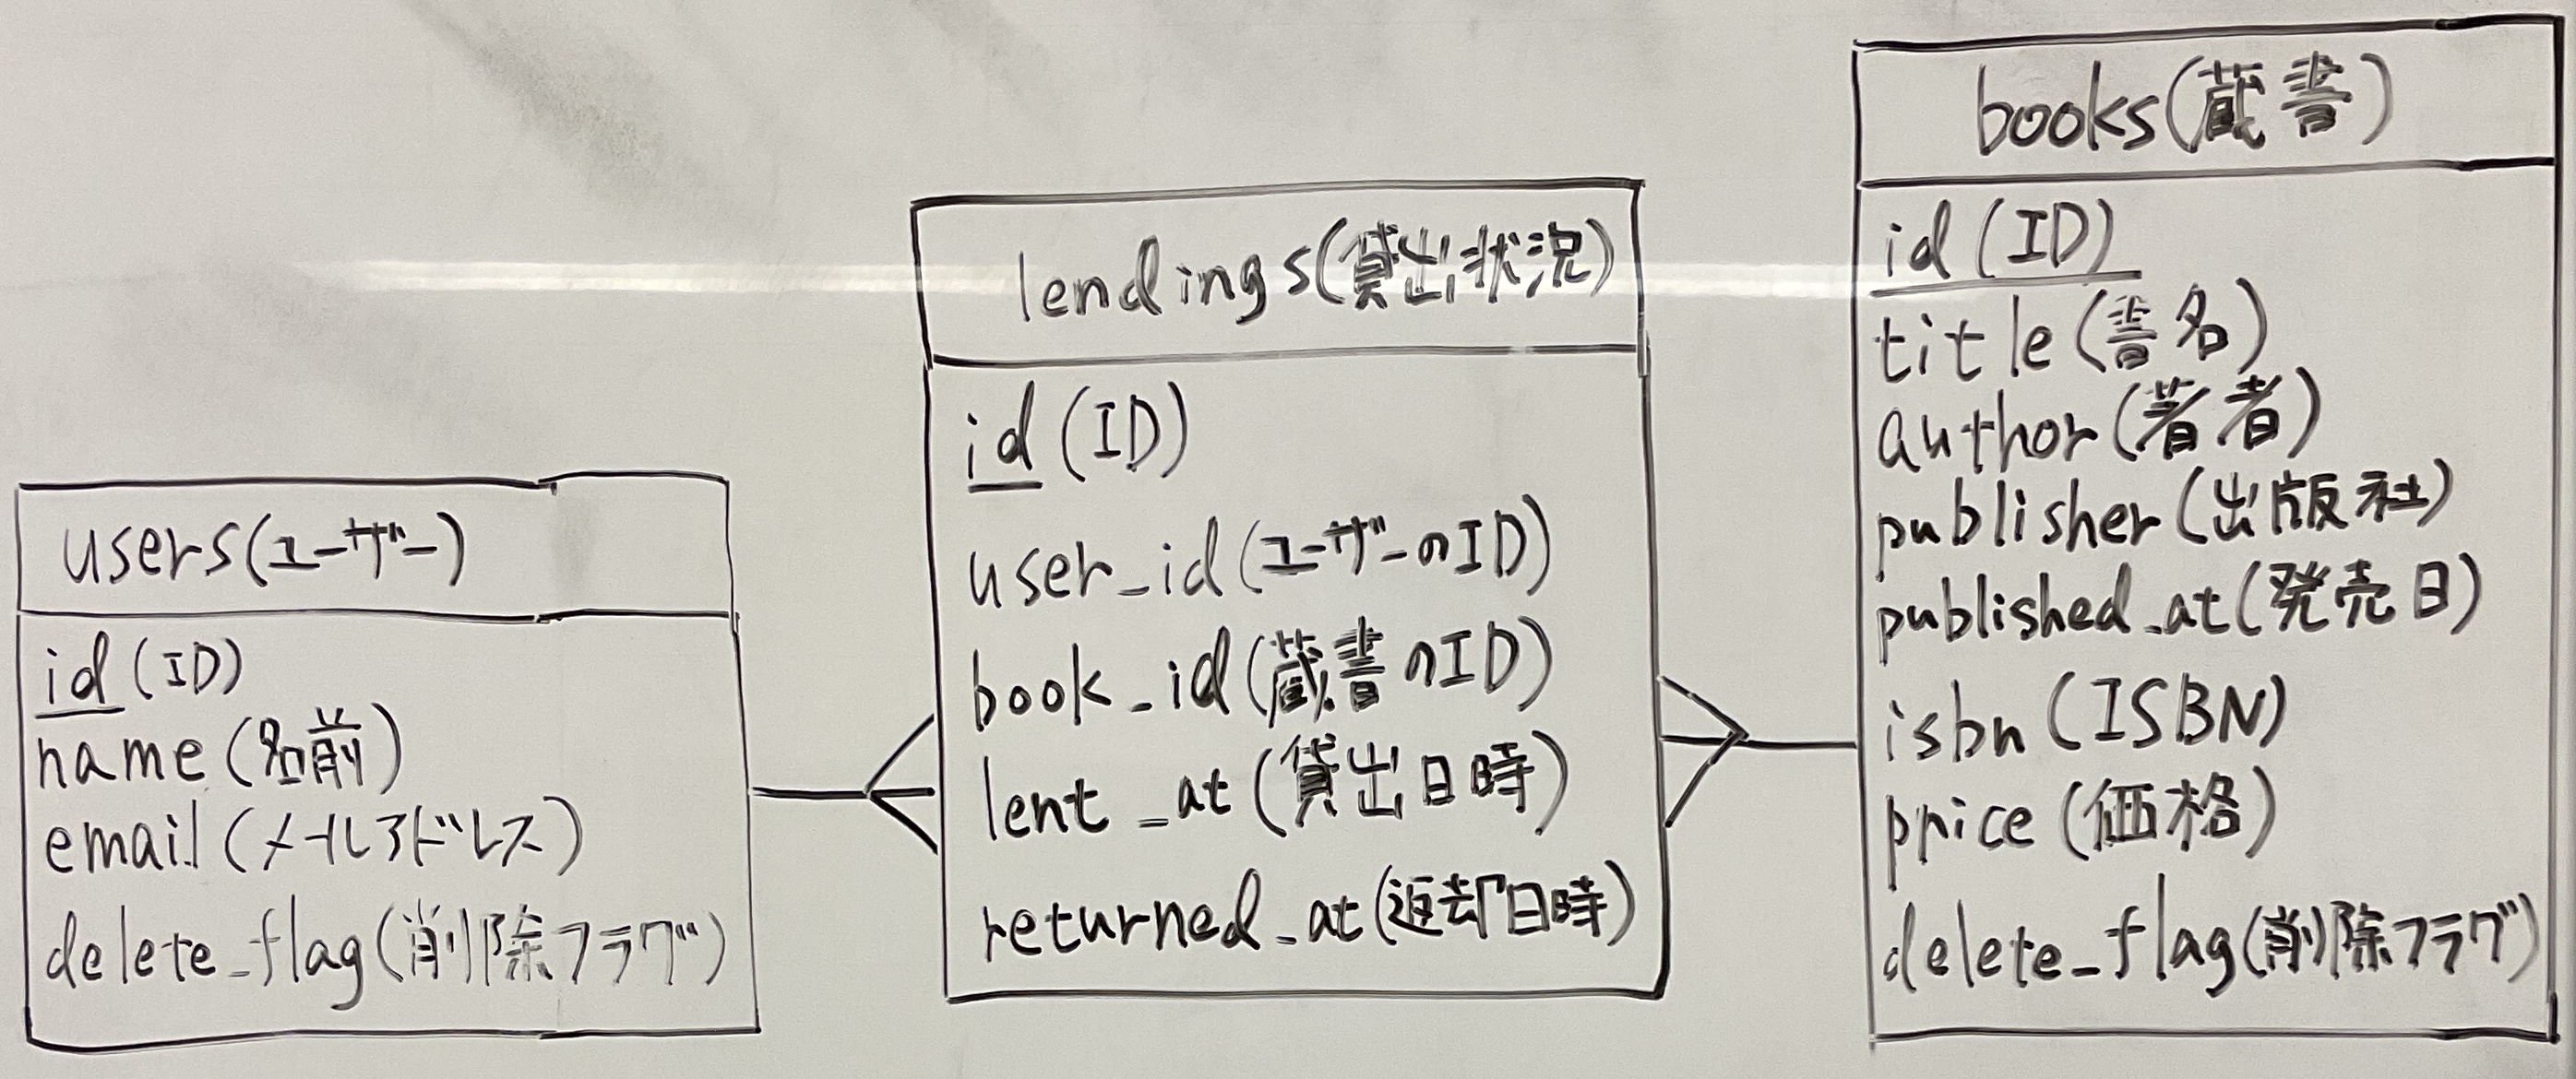 users(ユーザー)
id(ID)
name(名前)
email(メールアドレス)
delete_flag(削除フラグ)
lendings(貸出状況)
id(ID)
user_id(ユーザーのID)
book_id(蔵書のID)
lent_at(貸出日時)
returned_at(返却日時)
books(蔵書)
id(ID)
title(書名)
author(著者)
publisher(出版社)
published_at(発売日)
isbn(ISBN)
price(価格)
delete_flag(削除フラグ)